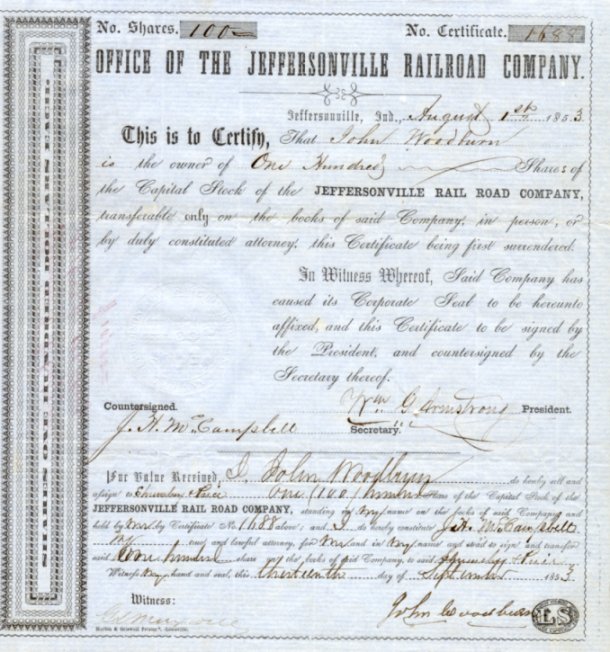 No. Shares. 100 No. Certificate. 1688
OFFICE OF THE JEFFERSONVILLE RAILROAD COMPANY.
Jeffersonville, Ind., August 1st 1853
This is to Certify, That John Woodburn
is the owner of One Hundred Shares of
the Capital Stock of the JEFFERSONVILLE RAIL ROAD COMPANY,
transferable only on the books of said Company, in person, or
by duly constituted attorney, this Certificate being first surrendered.
In Witness Whereof, Said Company has
caused its Corporate Seal to be hereunto
affixed, and this Certificate to be signed by
the President, and countersigned by the
Secretary thereof.
Countersigned. Wm G Armstrong President.
J. H. McCampbell Secretary.
For Value Received, I John Woodburn do hereby sell and
assign to One (100) hundred Shares of the Capital Stock of the
JEFFERSONVILLE RAIL ROAD COMPANY, standing in my name on the books of said Company and
held by me by Certificate No. 1688 above; and I do hereby constitute J. H. McCampbell
my true and lawful attorney, for me and in my name and stead to sign and transfer
said One hundred share on the books of said Company, to said
Witness my hand and seal, this thirteenth day of September 1853
Witness: John Woodburn LS